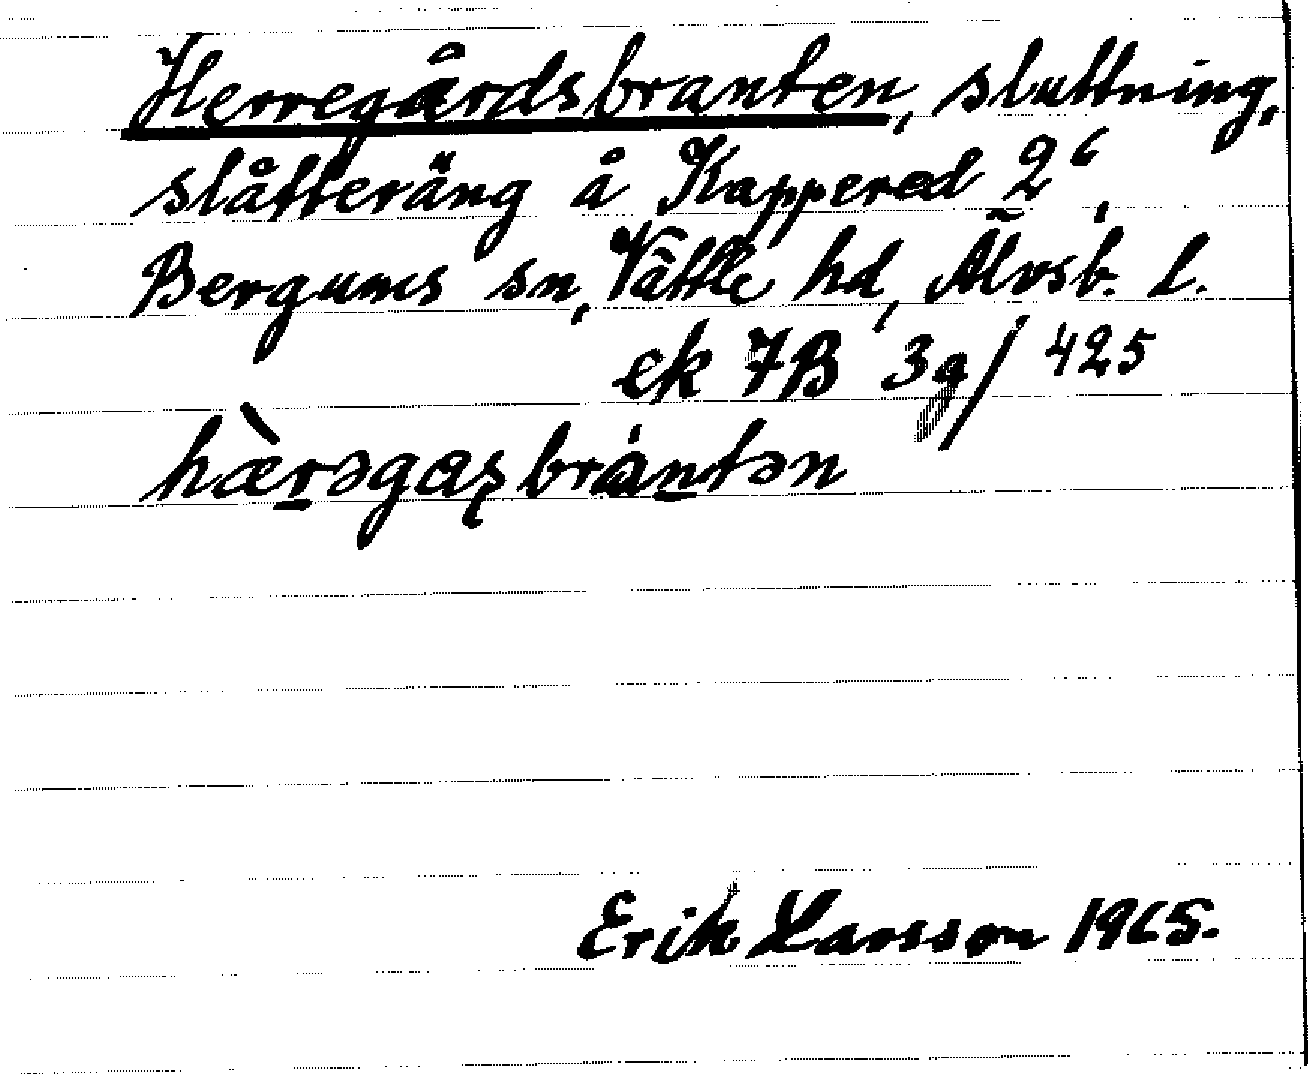 Herregårdsbranten, sluttning,
slåtteräng å Kappered 2⁶,
Bergums sn, Vättle hd, Älvsb. l.
ek 7B 3g/425
hæ̀rəgaʂbrántən
Erik Larsson 1965.